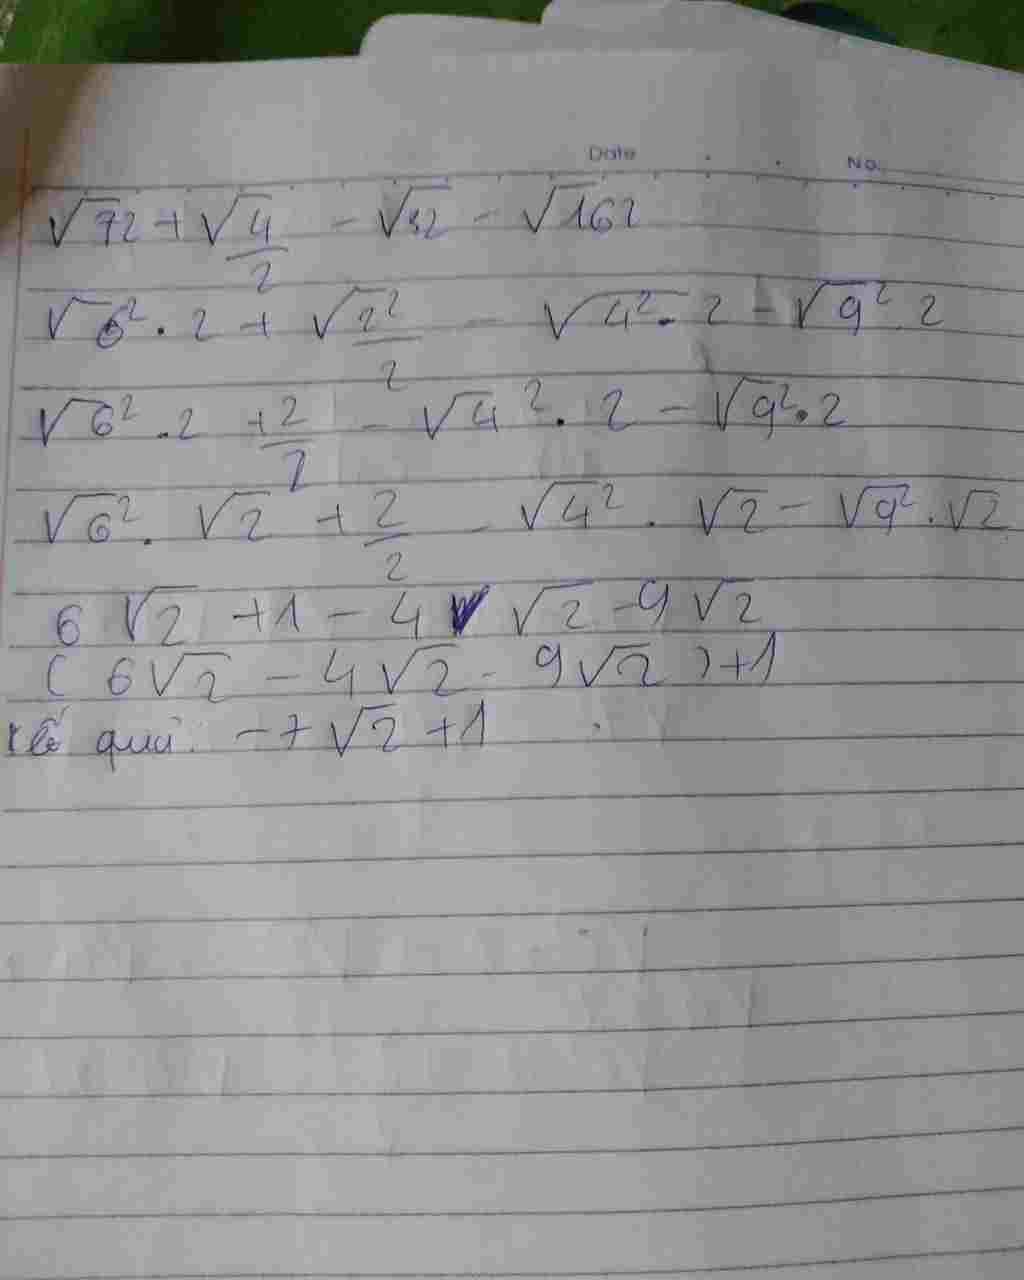 Date . . No.
√72 + √4/2 - √32 - √162
√6² . 2 + √2²/2 - √4² . 2 - √9² . 2
√6² . 2 + 2/2 - √4² . 2 - √9² . 2
√6² . √2 + 2/2 - √4² . √2 - √9² . √2
6 √2 + 1 - 4 √2 - 9 √2
( 6√2 - 4√2 - 9√2 ) + 1
quả: -7√2 + 1